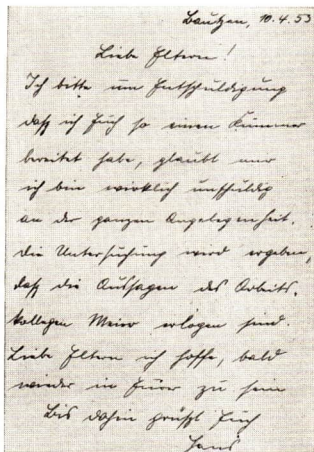 Bautzen, 10.4.53
Liebe Eltern!
Ich bitte um Entschuldigung
daß ich Euch so einen Kummer
bereitet habe, glaubt mir
ich bin wirklich unschuldig
an der ganzen Angelegenheit.
Die Untersuchung wird ergeben,
daß die Aussagen des Arbeits-
kollegen Meier erlogen sind.
Liebe Eltern ich hoffe, bald
wieder in Eurer zu sein
Bis dahin grüßt Euch
Hans